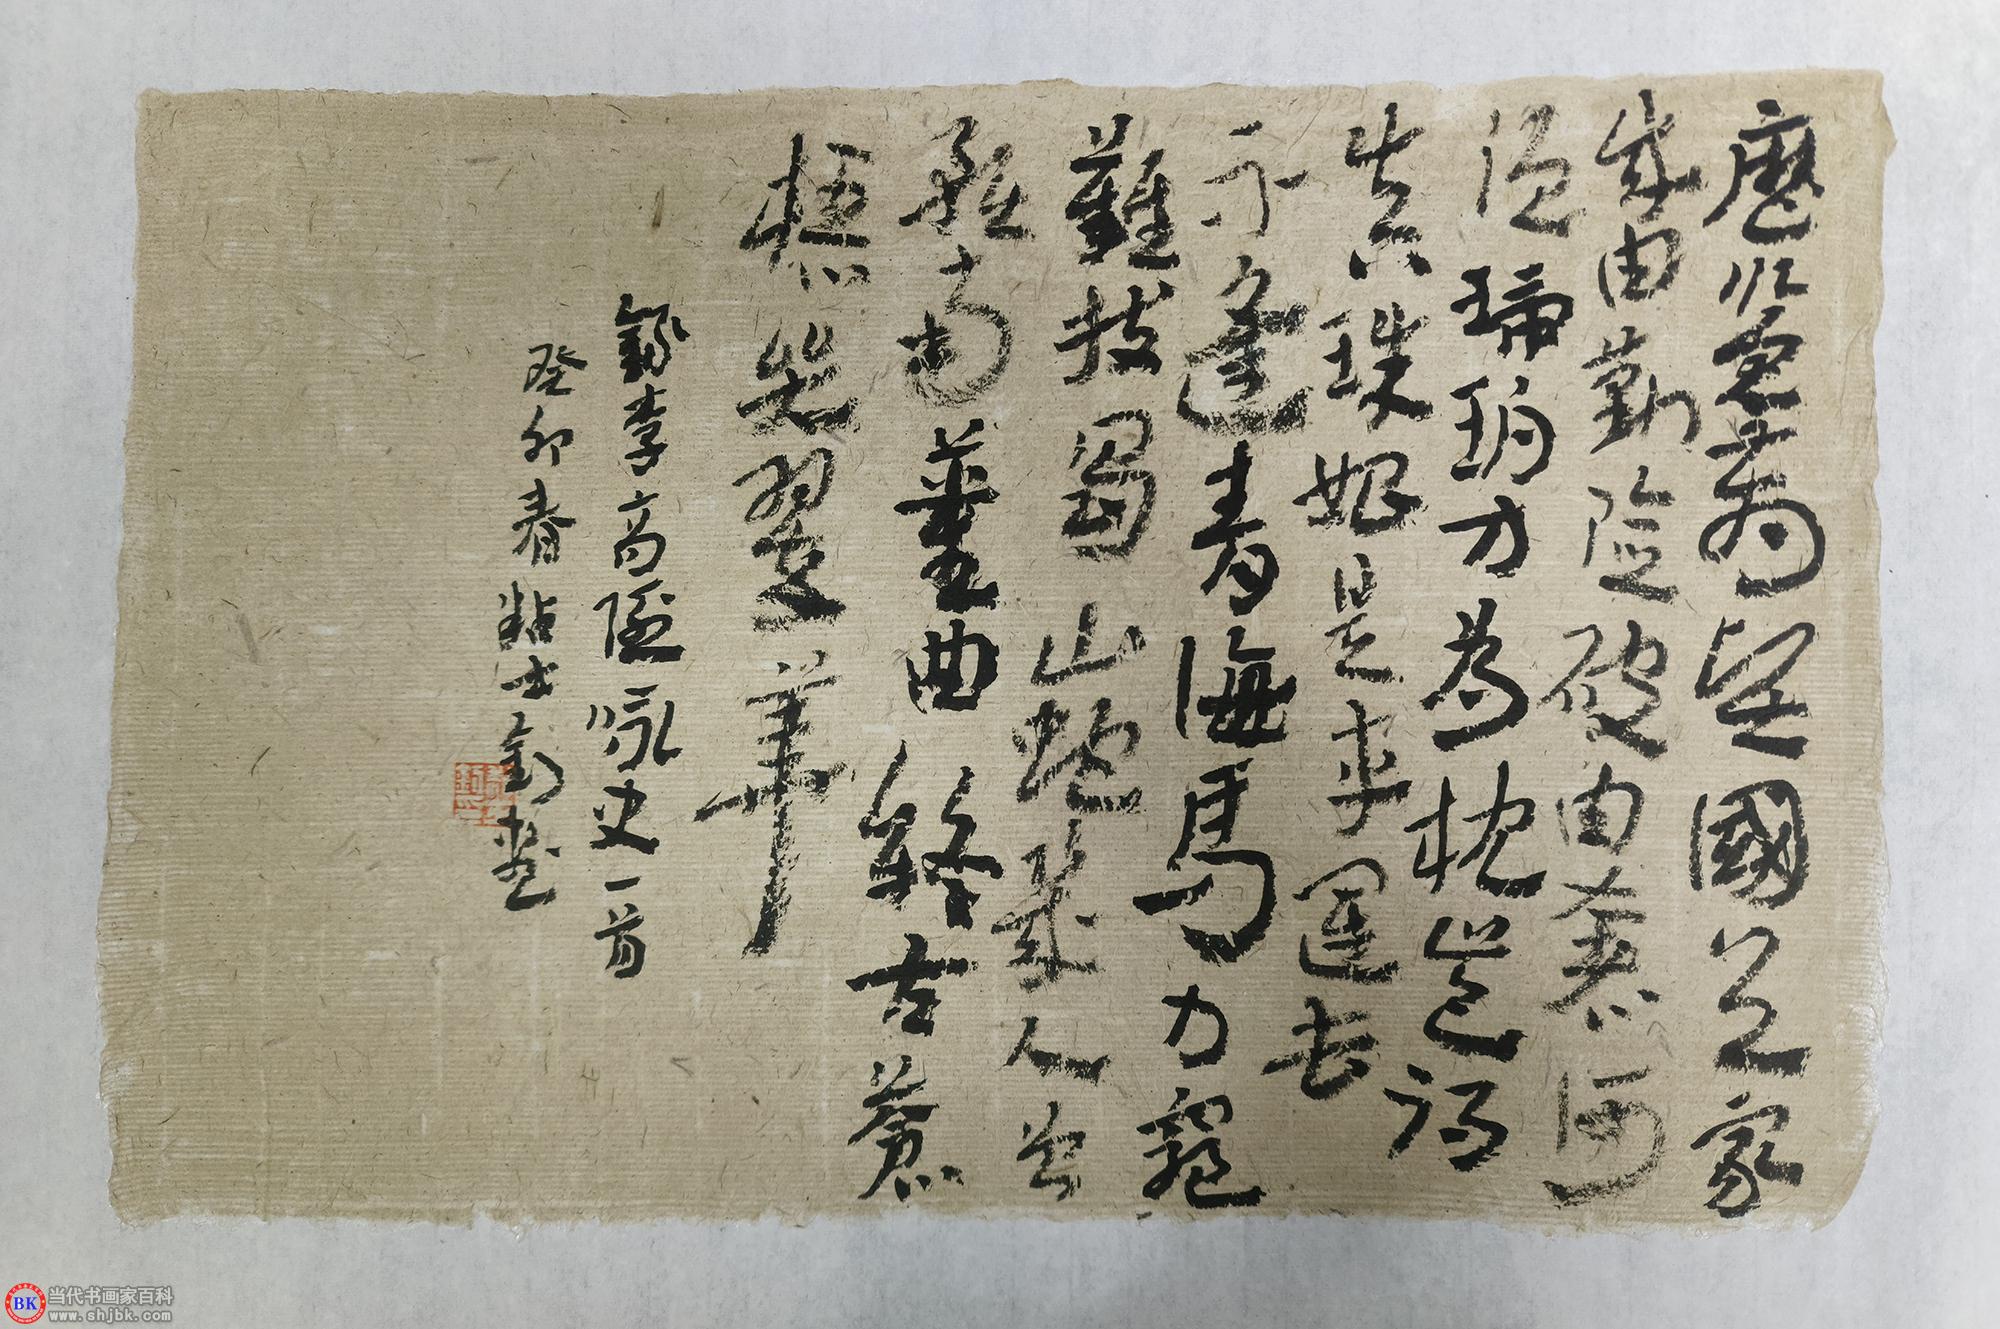 歷覽前賢國与家
成由勤險破由奢何
須琥珀方為枕豈得
真珠始是車運去
不逢青海馬力窮
難拔蜀山蛇幾人曾
預南薰曲終古蒼
梧哭翠華
錄李商隱咏史一首
癸卯春粘士
BK 当代书画家百科
www.shjbk.com